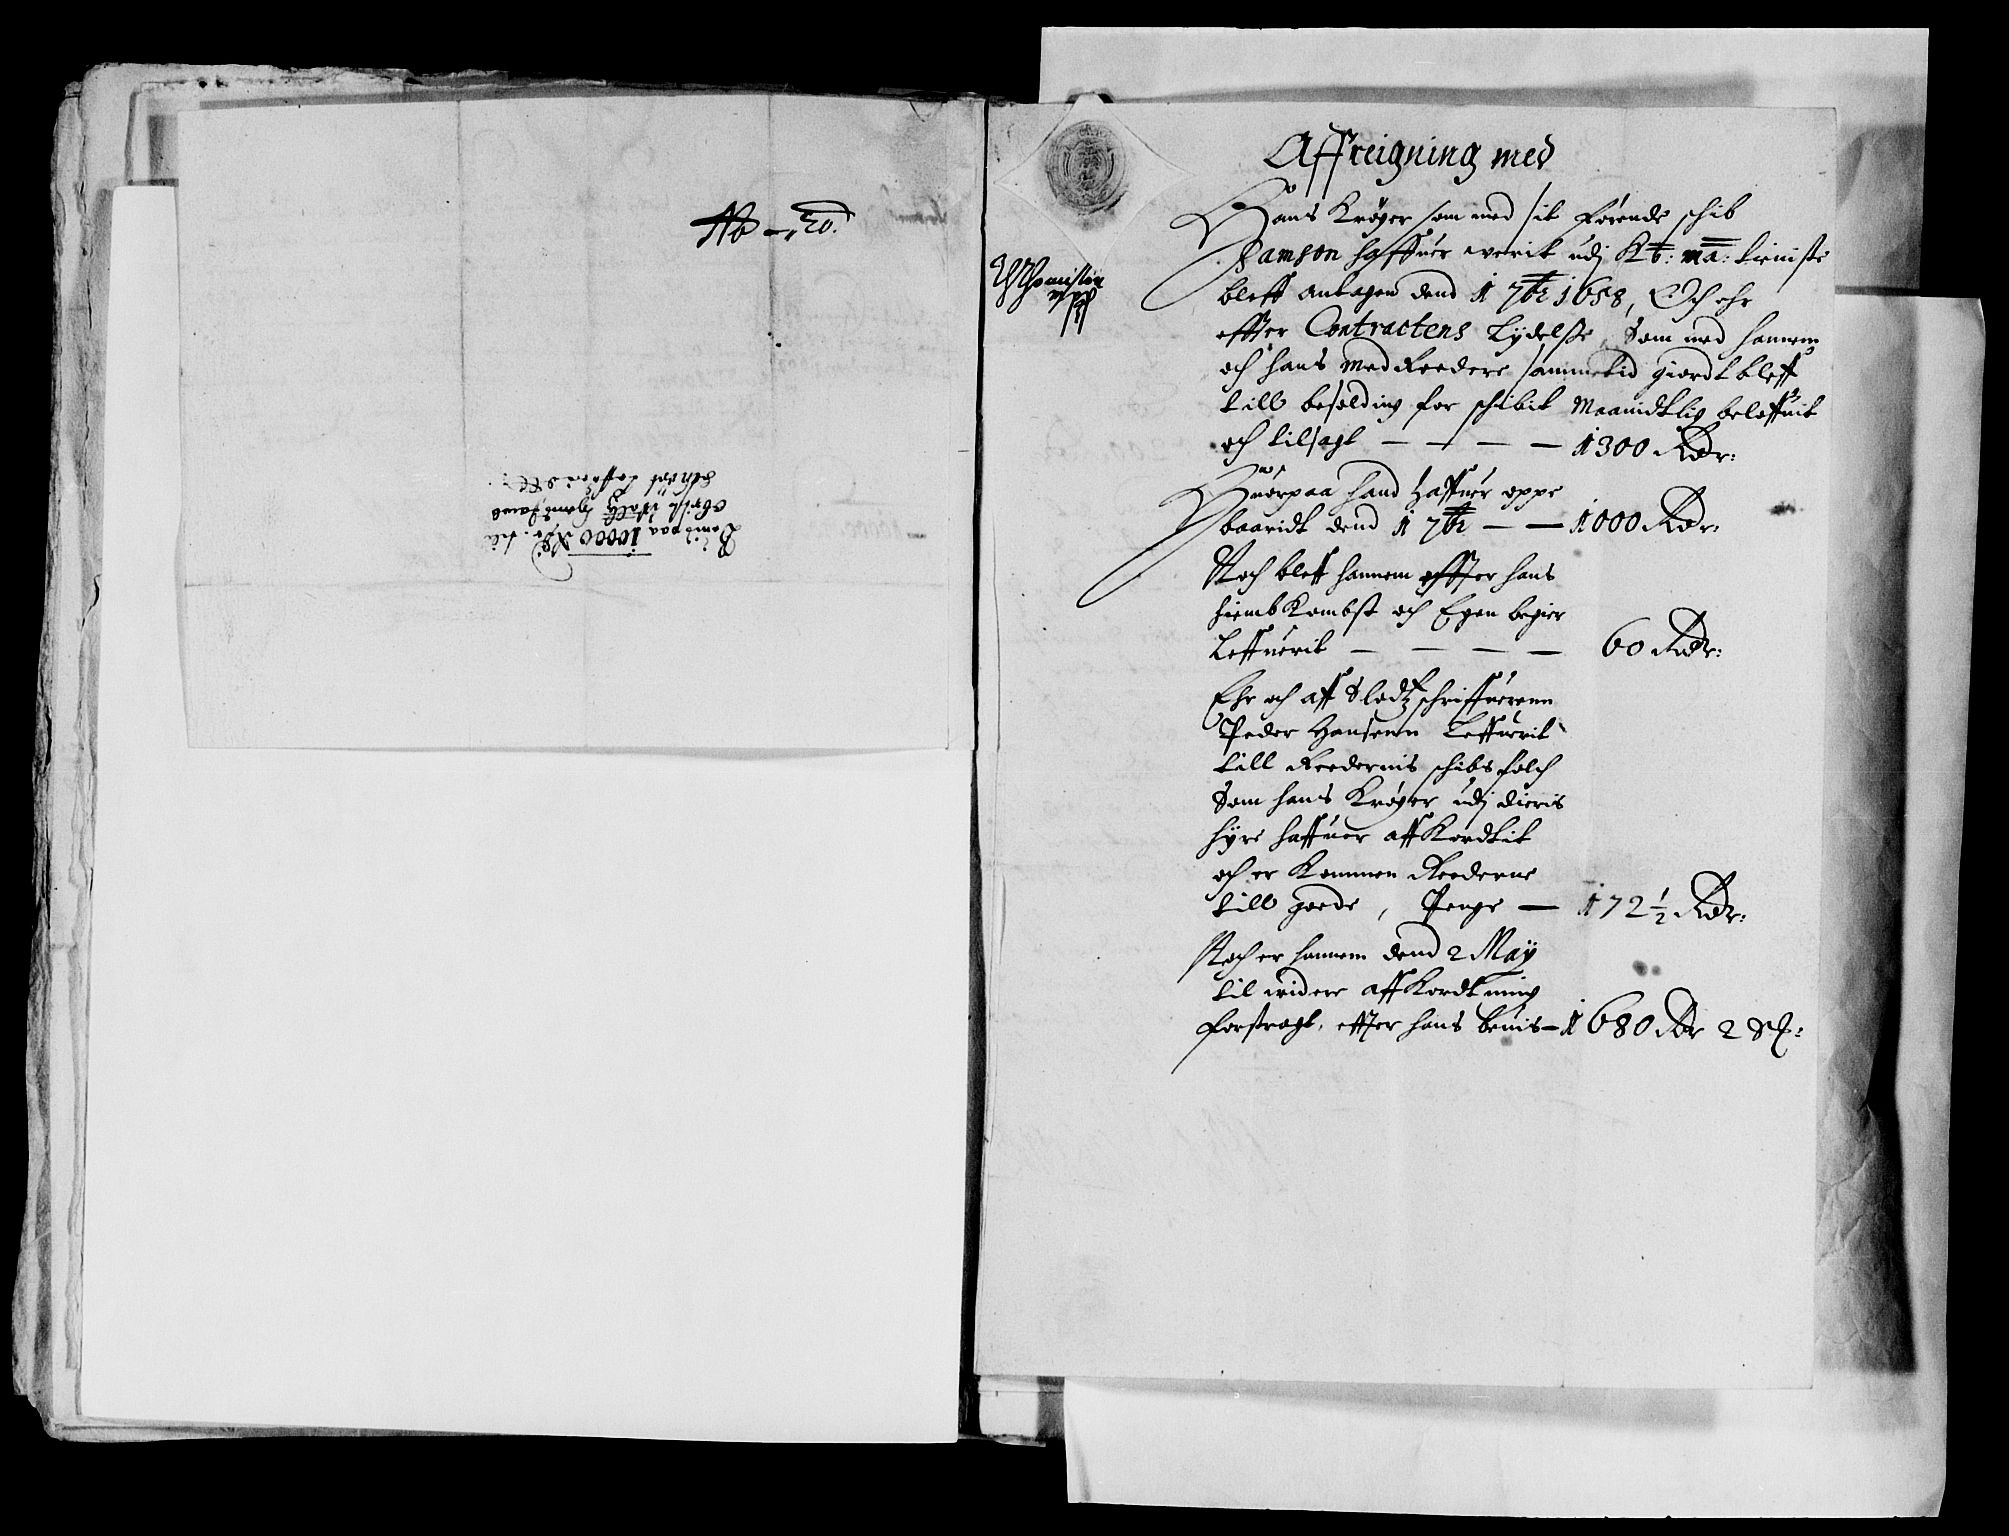 No – 20.
Beuis paa 10000 Rdr. till
Obriste
Affreigning med
Hans Krøger som med sit førende schib
Samson haffuer werit udj Kb: Ma: tieniste
bleff antagen dend 1 7br 1658, Och ehr
effter Contractens Lydelse, Som med hannem
och hans Med Reedere sammetid giordt bleff
till besolding for schibit Maanidtlig beloffuit
och tilsagt — — — — 1300 Rdr:
Huorpaa hand haffuer oppe
baaridt dend 1 7br — — 1000 Rdr:
Noch bleff hannem effter hans
hiemb Kombst och Egen begier
Leffuerit — — — — 60 Rdr:
Ehr och aff Slodtzschriffuerenn
Peder Hansenn Leffuerit
till Reedernis schibsfolch
Som hans Krøger udj dieris
hyre haffuer affKordtit
och er Kommen Reederne
till goede, Penge — 172½ Rdr:
Noch er hannem dend 2 May
til widere affKordtning
forstragt, effter hans beuis – 1680 Rdr 2 Sk: